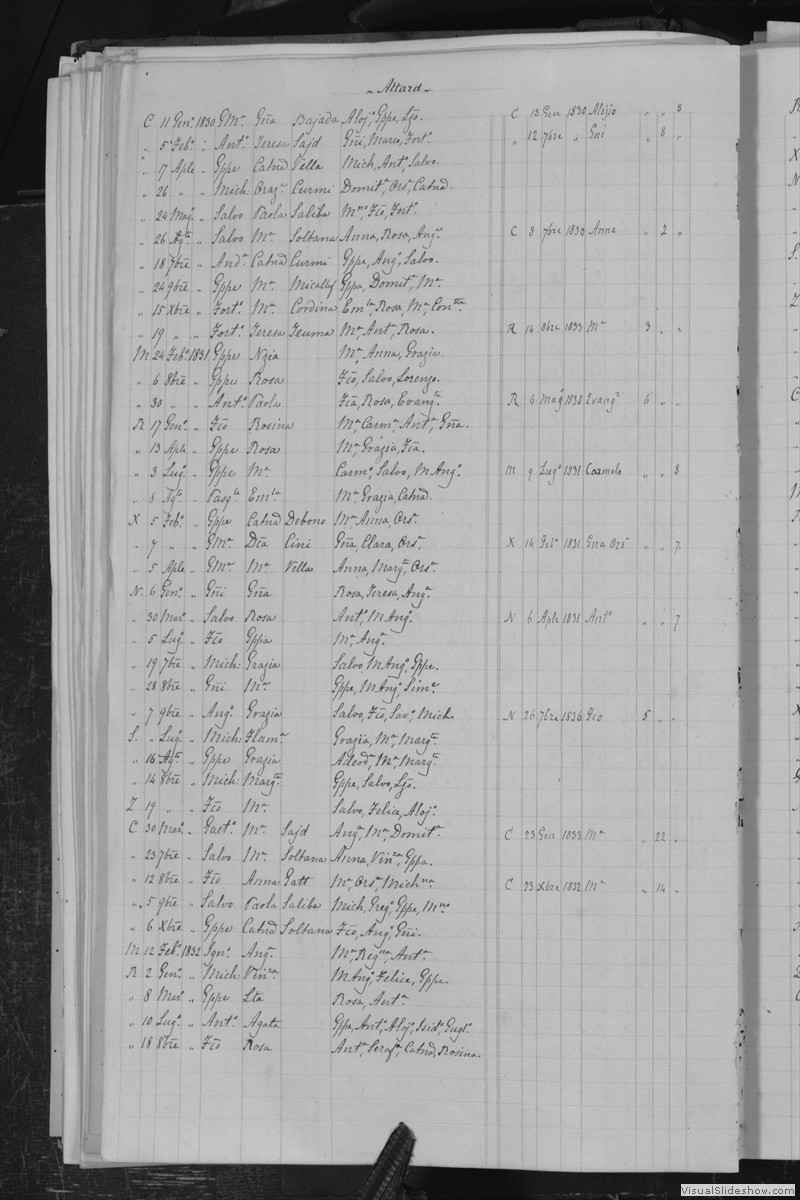 ~ Attard ~
C 11 Genº 1830 GMª Gña Bajada Alojº, Gppe, Ljo. C 13 Gen 1830 Alojjo " " 8
" 5 Febº " Antº Teresa Sajd Gñi, Marco, Fortº " 12 7bre " Gni " 8 "
" 17 Aple " Gppe Catnd Vella Mich, Antº, Salvo.
" 26 " " Mich: Orazª Curmi Domitª, Orsª, Catnd.
" 24 Magº " Salvo Paola Saliba Mⁿº, Fio, Fortº
" 26 Agto " Salvo Mª Soltana Anna, Rosa, Angª. C 8 7bre 1830 Anna " 2 "
" 18 7bre " Andª Catnd Curmi Gppe, Angº, Salvo.
" 24 9bre " Gppe Mª Micallef Gppa, Domitª, Mª.
" 15 Xbre " Fortº Mª Cordina Emla, Rosa, Mª, Contta.
" 19 " " Fortº Teresa Teuma Mª, Antª, Rosa. R 14 8bre 1833 Mª 3 " "
M 24 Febº 1831 Gppe Nzia Mª, Anna, Grazia
" 6 8bre " Gppe Rosa Fio, Salvo, Lorenzo.
" 30 " " Antº Paola Fia, Rosa, Evangª. R 6 Magº 1838 Evangª 6 " "
R 17 Genº " Fio Rosina Mª, Carmª, Antª, Gña.
" 13 Aple " Gppe Rosa Mª, Grazia, Fia.
" 3 Lugº " Gppe Mª Carmº, Salvo, M Angº. M 9 Lugº 1831 Carmelo " " 8
" 8 Agto " Pasqla Emla Mª Grazia, Catnd.
X 5 Febº " Gppe Catnd Debono Mª, Anna, Orsª.
" 7 " " GMª Dia Cini Gña, Clara, Orsª. X 14 Febº 1831 Gna Orsª " " 7
" 5 Aple " GMª Mª Vella Anna, Margª, Orsª
N 6 Genº " Gñi Gña Rosa, Teresa, Angª
" 30 Marº " Salvo Rosa Antº, M Angº. N 6 Aple 1831 Antº " " 7
" 5 Lugº " Fio Gppa Mª, Angª.
" 19 7bre " Mich: Grazia Salvo, M Angº, Gppe.
" 28 8bre " Gñi Mª Gppe, M Angº, Simª.
" 7 9bre " Angº Grazia Salvo, Fio, Savº, Mich. N 26 7bre 1836 Fio 5 " "
S. " Lugº " Mich: Flamª Grazia, Mª, Margª.
" 16 Agto " Gppe Grazia Adeodª, Mª, Margª.
" 14 8bre " Mich: Margª Gppe, Salvo, Ljo.
Z 19 " " Fio Mª Salvo, Felice, Alojº.
C 30 Marº " Gaetº Mª Sajd Angª, Mª, Domitª C 23 Gen 1833 Mª " 22 "
" 23 7bre " Salvo Mª Soltana Anna, Vinza, Gppa.
" 12 8bre " Fio Anna Gatt Mª, Orsª, Michna. C 23 Xbre 1832 Mª " 14 "
" 5 9bre " Salvo Paola Saliba Mich, Gregº, Gppe, Mⁿº
" 6 Xbre " Gppe Catnd Soltana Fio, Angº, Gñi.
M 12 Febº 1832 Ignº Angª Mª, Regna, Antª
R 2 Genº " Mich: Vinza M Angº, Felice, Gppe.
" 8 Marº " Gppe Lta Rosa, Antª
" 10 Lugº " Antº Agata Gppe, Antº, Alojº, Isidº, Guglº
" 18 8bre " Fio Rosa Antª, Serafª, Catnd, Rosina.
VisualSlideshow.com